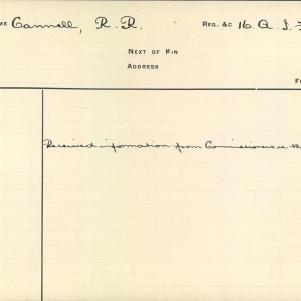 ME Cannell, R. R. REG. &C 16. A. I.
NEXT OF KIN
ADDRESS
F
Received information from Commissioners